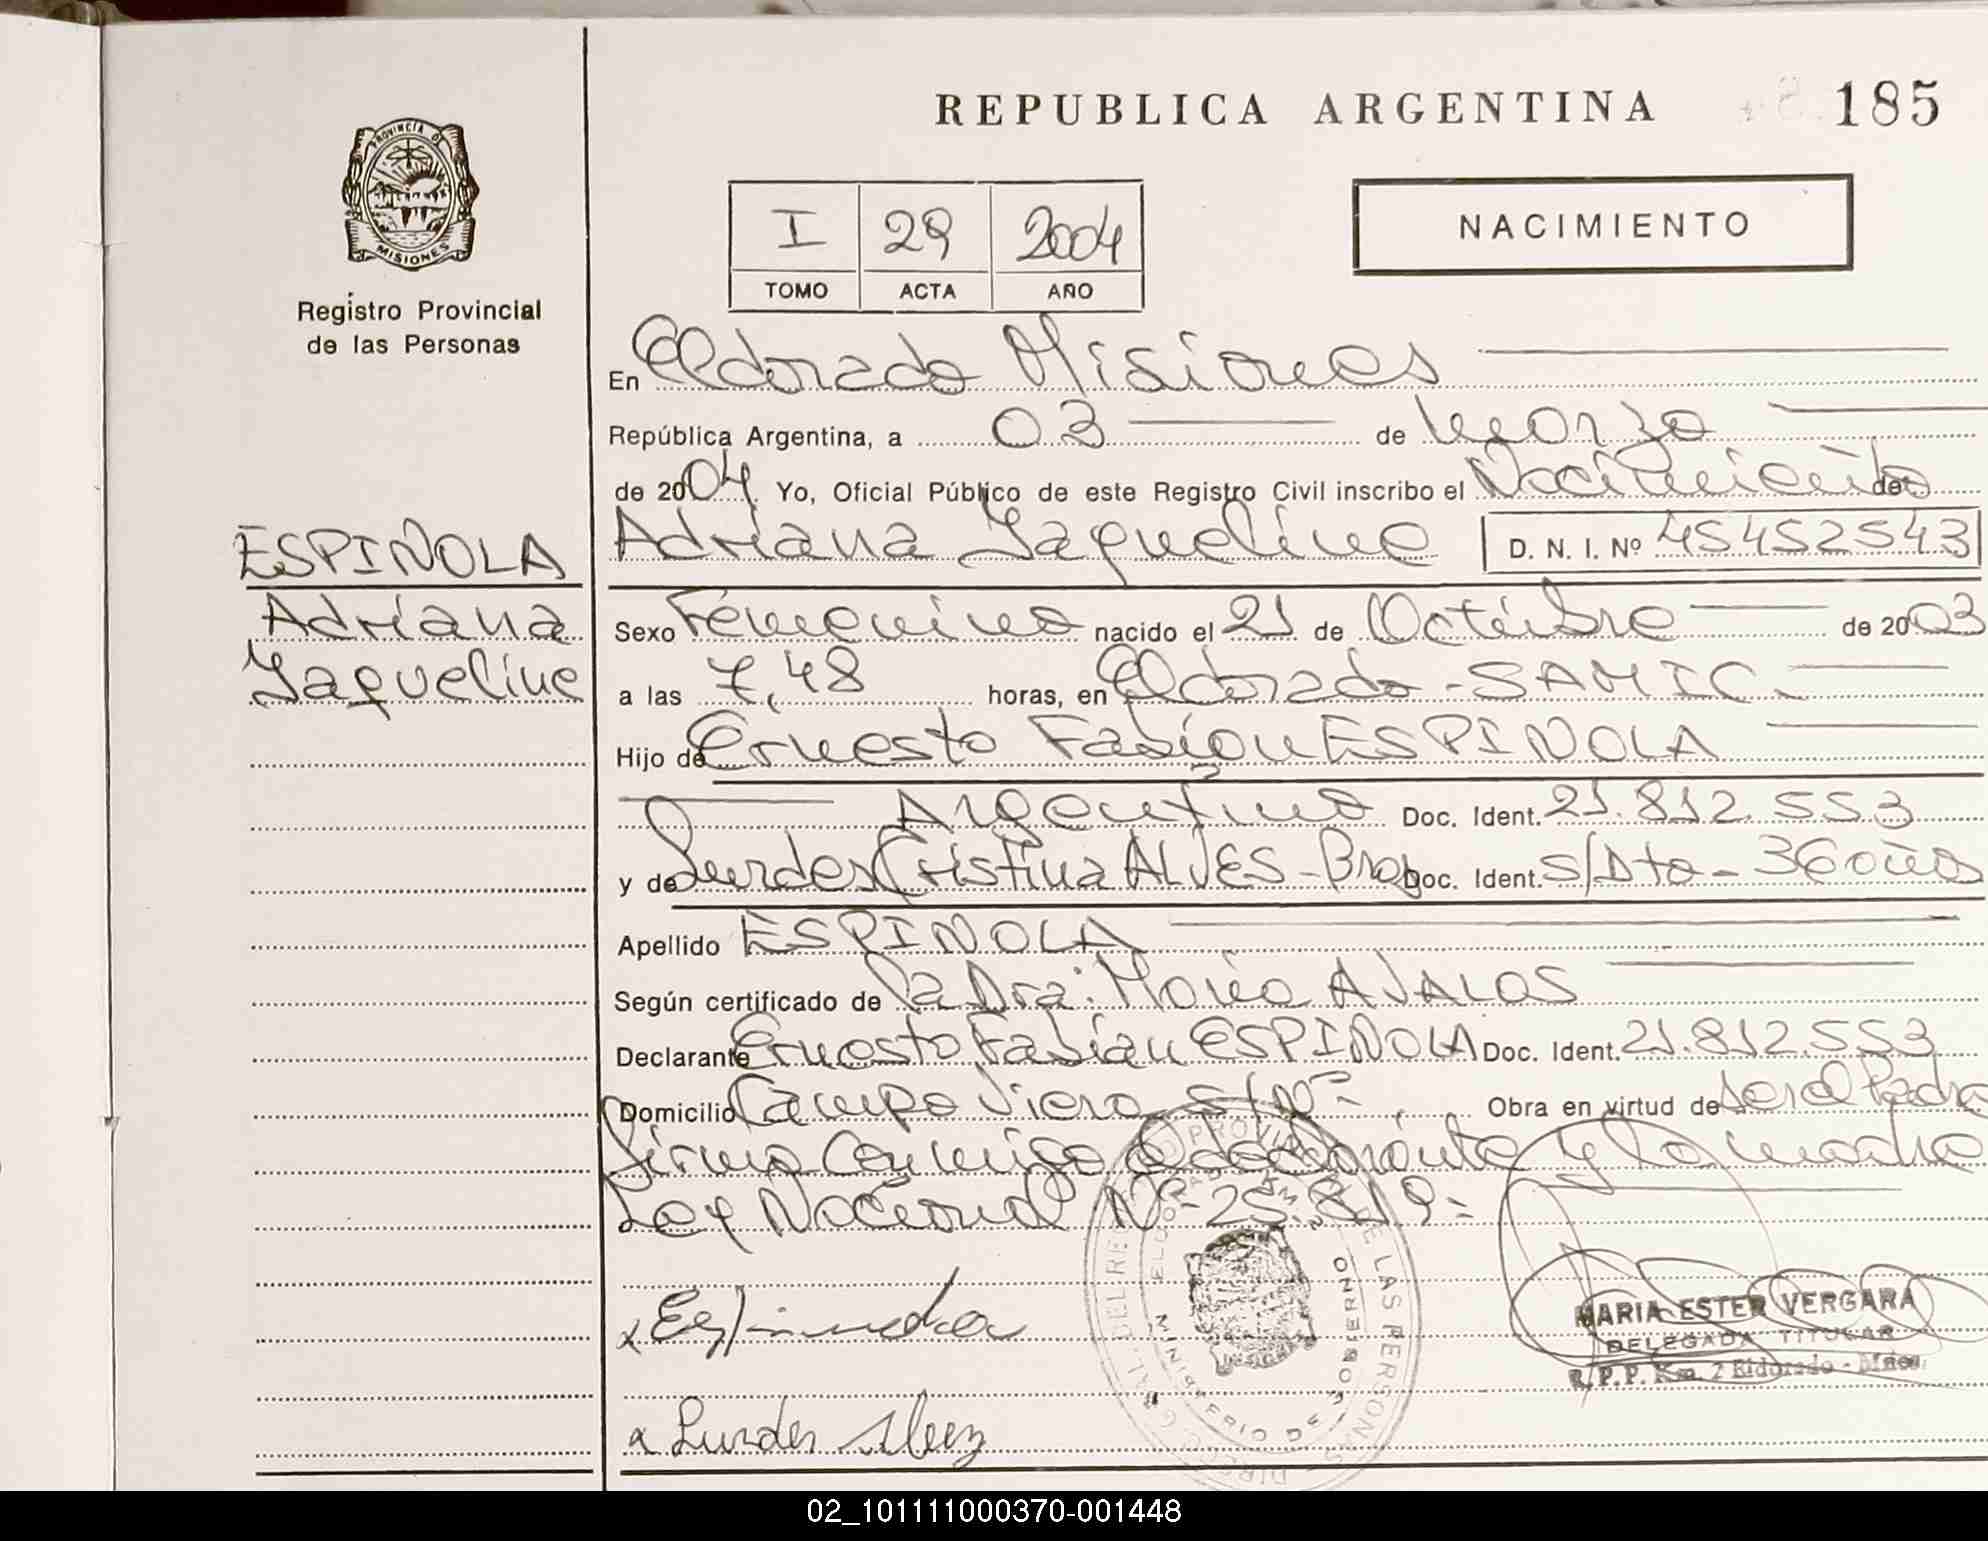 REPUBLICA ARGENTINA 185
PROVINCIA DE
MISIONES
Registro Provincial
de las Personas
I 29 2004
TOMO ACTA AÑO
NACIMIENTO
En Eldorado Misiones
República Argentina, a 03 de Marzo
de 2004. Yo, Oficial Público de este Registro Civil inscribo el Nacimiento de
Adriana Jaqueline D. N. I. Nº 45452543
ESPINOLA
Adriana
Jaqueline
Sexo Femenino nacido el 21 de Octubre de 2003
a las 7,48 horas, en Eldorado - SAMIC -
Hijo de Ernesto Fabián ESPINOLA
Argentino Doc. Ident. 21.812.553
y de Lurdes Cristina ALVES - Doc. Ident. S/Dto - 36 años
Apellido ESPINOLA
Según certificado de La Dra: María AVALOS
Declarante Ernesto Fabián ESPINOLA Doc. Ident. 21.812.553
Domicilio Campo Viera S/Nº. Obra en virtud de ser el Padre
Firma conmigo el declarante y la madre
Ley Nacional Nº 25.819=
x Espinola
x Lurdes Alvez
MARIA ESTER VERGARA
DELEGADA TITULAR
R.P.P. Km. 2 Eldorado - Mnes.
02_101111000370-001448